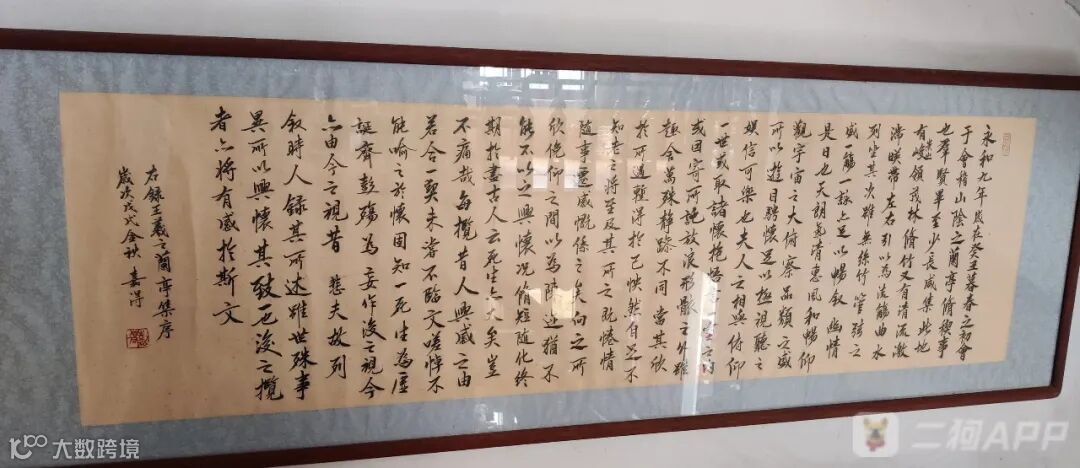 永和九年歲在癸丑暮春之初會
于會稽山陰之蘭亭脩稧事
也羣賢畢至少長咸集此地
有峻領茂林脩竹又有清流激
湍暎帶左右引以為流觴曲水
列坐其次雖無絲竹管弦之
盛一觴一詠亦足以暢敘幽情
是日也天朗氣清惠風和暢仰
觀宇宙之大俯察品類之盛
所以遊目騁懷足以極視聽之
娛信可樂也夫人之相與俯仰
一世或取諸懷抱悟言一室之內
或因寄所託放浪形骸之外雖
趣舍萬殊靜躁不同當其欣
於所遇暫得於己怏然自足不
知老之將至及其所之既惓情
隨事遷感慨係之矣向之所
欣俛仰之間以為陳迹猶不
能不以之興懷況脩短隨化終
期於盡古人云死生亦大矣豈
不痛哉每攬昔人興感之由
若合一契未嘗不臨文嗟悼不
能喻之於懷固知一死生為虛
誕齊彭殤為妄作後之視今
亦由今之視昔 悲夫故列
敘時人錄其所述雖世殊事
異所以興懷其致一也後之攬
者亦將有感於斯文
右錄王羲之蘭亭集序
歲次戊戌金秋 嘉得
大数跨境
二狗APP